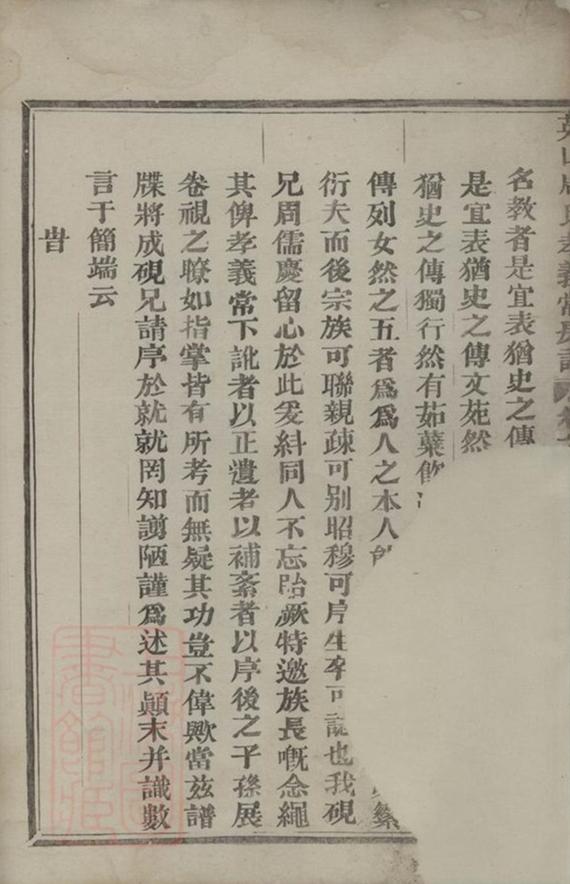 名教者是宜表猶史之傳
是宜表猶史之傳文苑然
猶史之傳獨行然有茹蘗飲
傳列女然之五者爲爲人之本人
衍夫而後宗族可聯親疎可別昭穆可序生卒可誌也我硯
兄周儒慶留心於此爰糾同人不忘貽厥特邀族長慨念繩
其俾孝義常下訛者以正遺者以補紊者以序後之子孫展
卷視之瞭如指掌皆有所考而無疑其功豈不偉歟當兹譜
牒將成硯兄請序於就就罔知譾陋謹爲述其顛末并識數
言于簡端云
旹